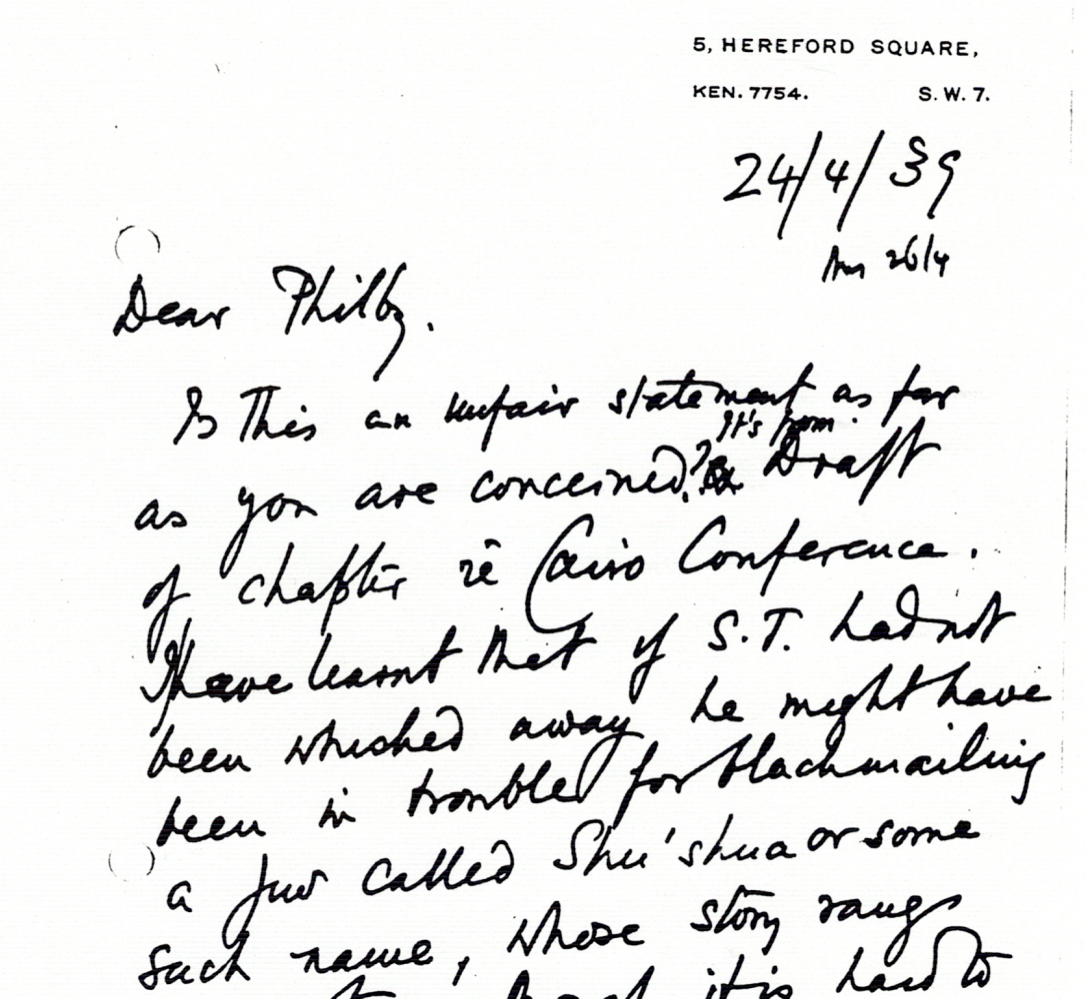 5, HEREFORD SQUARE,
KEN. 7754. S. W. 7.
24/4/39
Ans 26/4
Dear Philby.
Is This an unfair statement as far
as you are concerned? It's from Draft
of chapter re Cairo Conference.
I have learnt that if S.T. had not
been whisked away he might have
been in trouble for blackmailing
a Jew called Shu'shua or some
such name, whose story rang
it is hard to